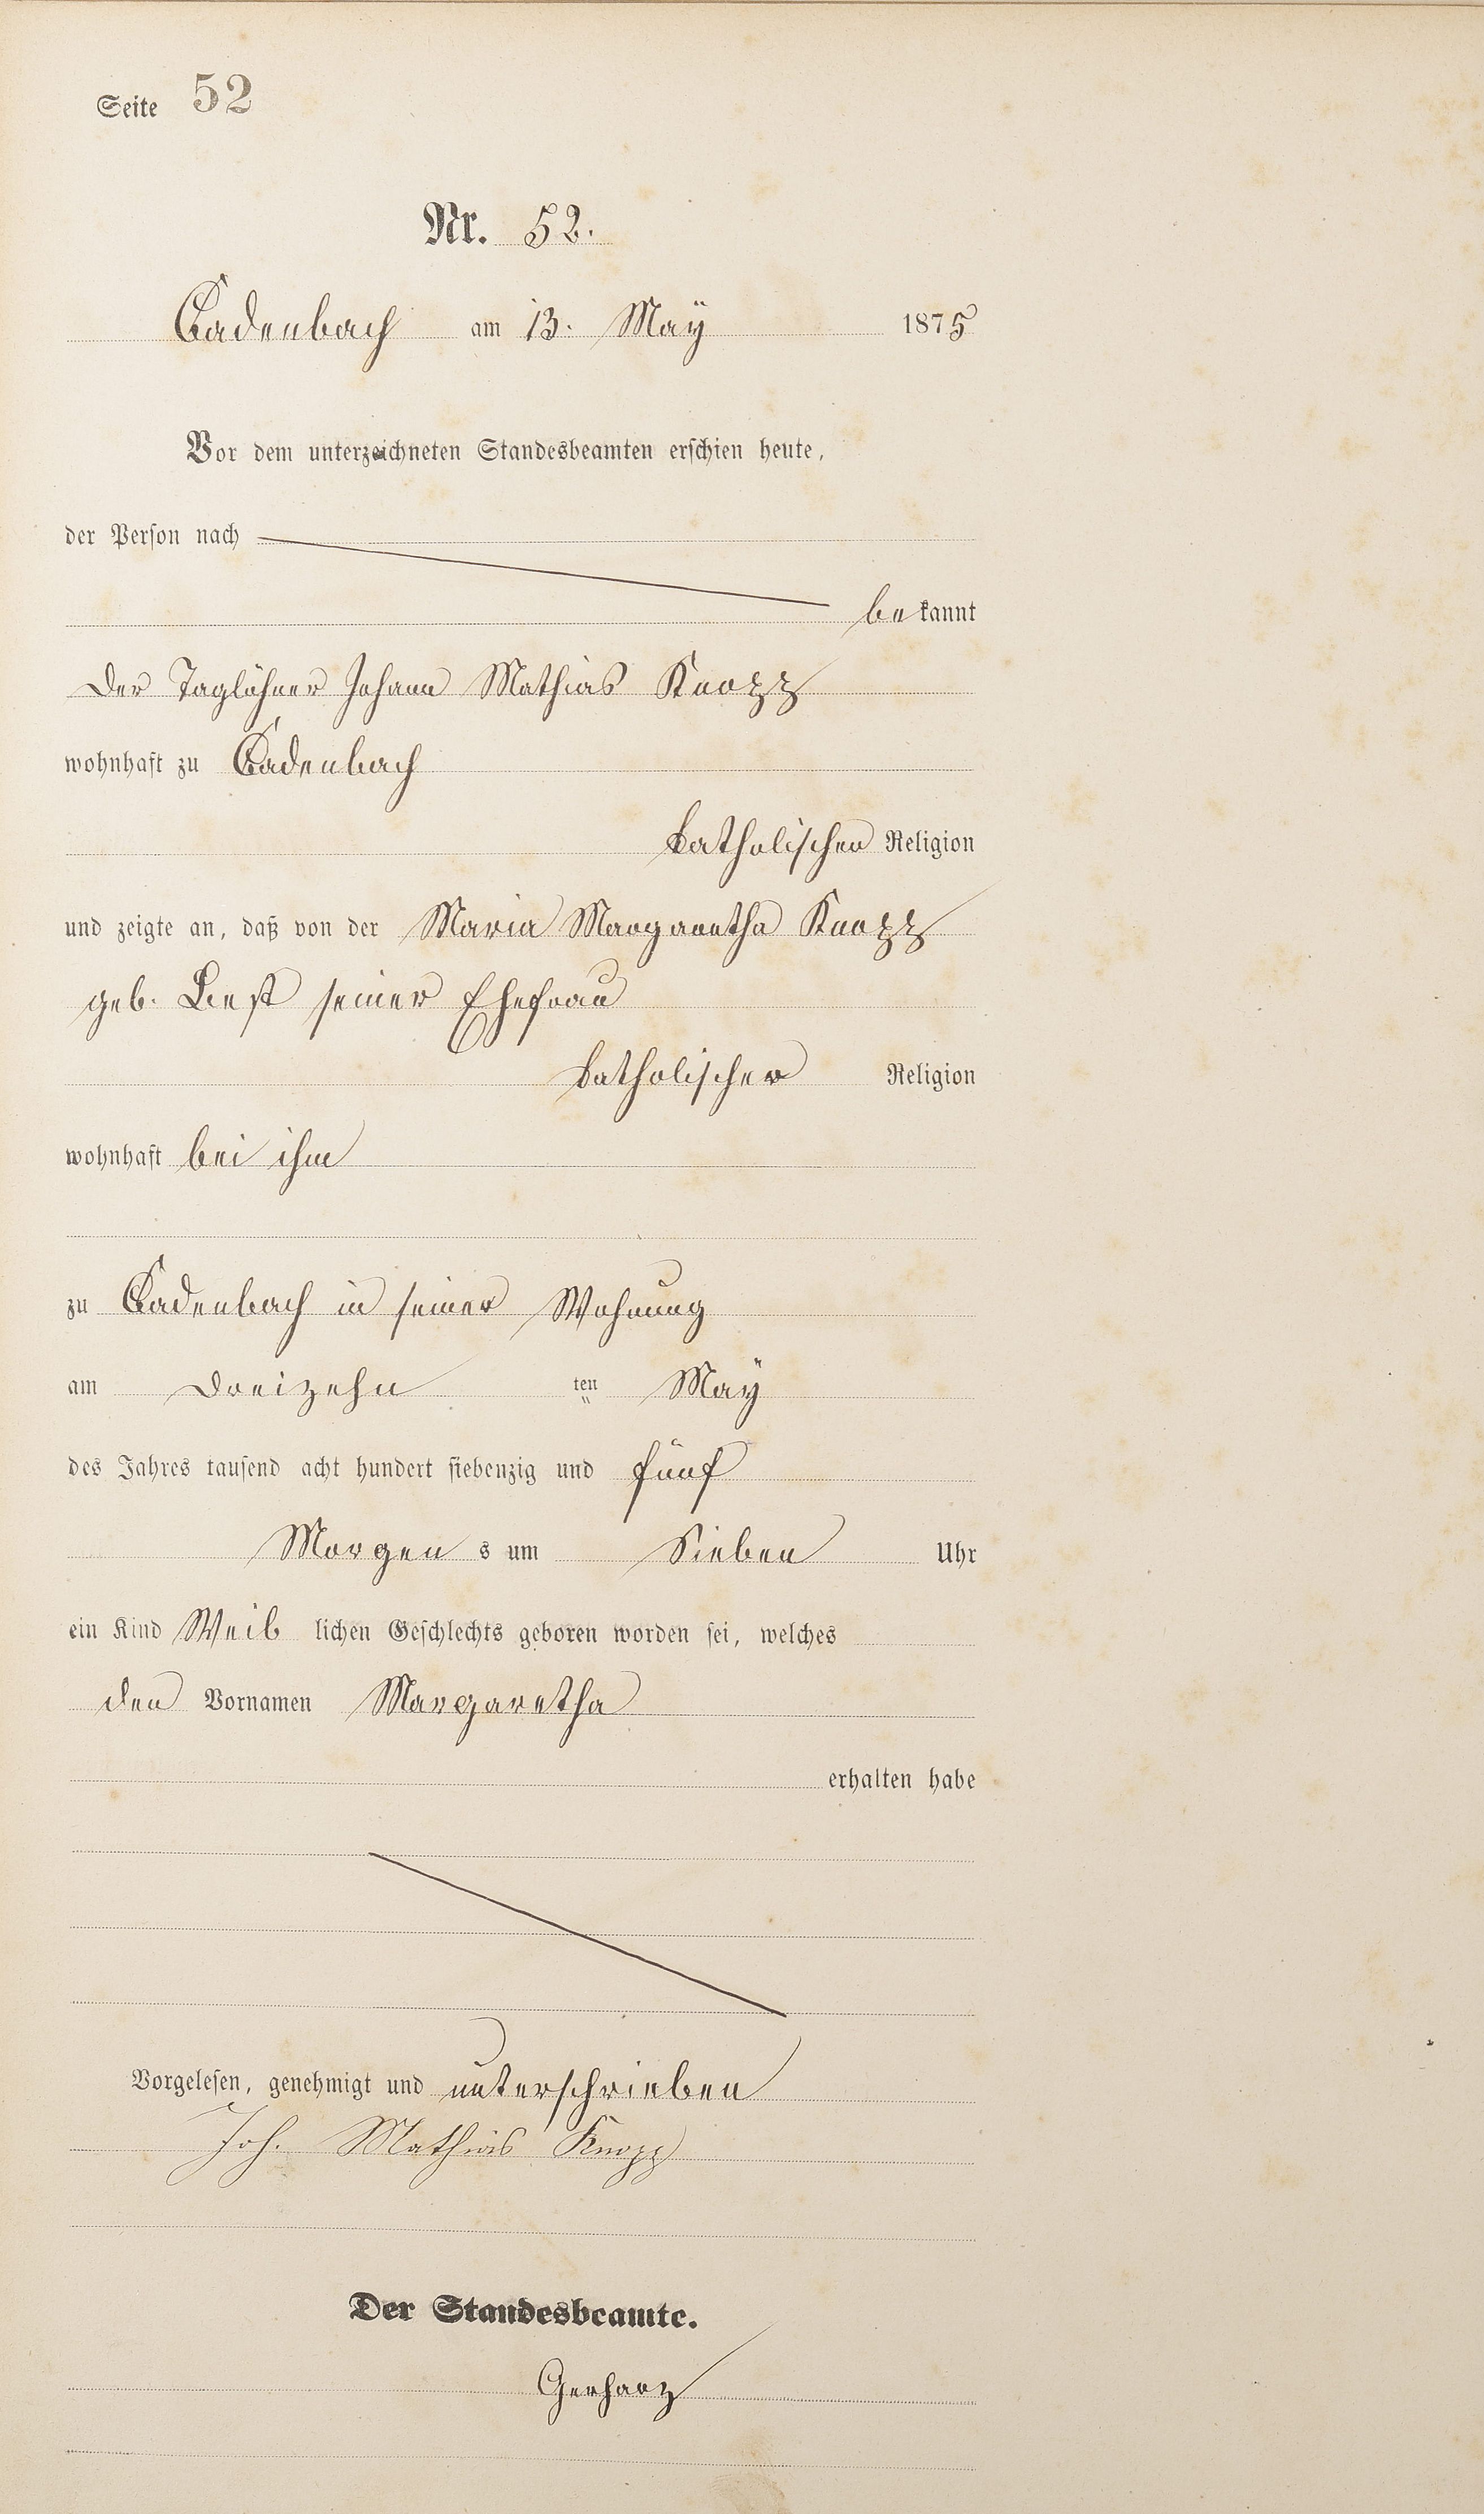 Seite 52
Nr. 52.
Cadenbach am 13. Maÿ 1875
Vor dem unterzeichneten Standesbeamten erschien heute,
der Person nach
bekannt
der Taglöhner Johann Mathias Knopp
wohnhaft zu Cadenbach
katholischer Religion
und zeigte an, daß von der Maria Margaretha Knopp
geb. Best seiner Ehefrau
katholischer Religion
wohnhaft bei ihm
zu Cadenbach in seiner Wohnung
am dreizehn ten Maÿ
des Jahres tausend acht hundert siebenzig und fünf
Morgens um Sieben Uhr
ein Kind Weiblichen Geschlechts geboren worden sei, welches
den Vornamen Margaretha
erhalten habe
Vorgelesen, genehmigt und unterschrieben
Joh. Mathias Knopp
Der Standesbeamte.
Gerharz